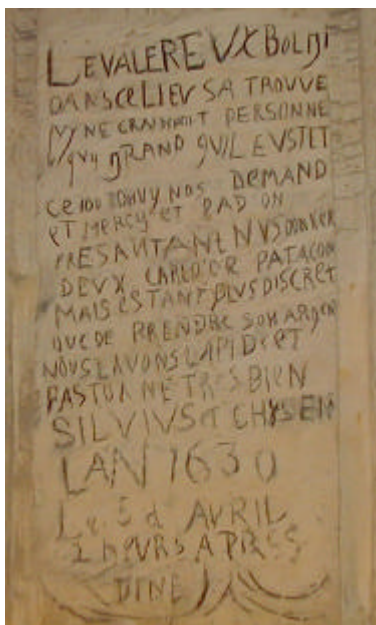 LEVALEREVX BOLDI
DANS CE LIEV SA TROUVE
NY NE CRAINOIT PERSONNE
QUIL EVSTET
CE IOU DHUY NOS DEMAND
ET MERCY ET PAD ON
PRESANTANT NVS DONNER
DEVX CARLO DOR PATACON
MAIS ESTANT PLUS DISCRET
QUE DE PRENDRE SON ARGEN
NOUS LAVONS LAPIDE ET
BASTONNE TRES BIEN
SILVIVS ET CHYSEN
LAN 1630
Le 5 d AVRIL
2 HEURS APRES
DINE